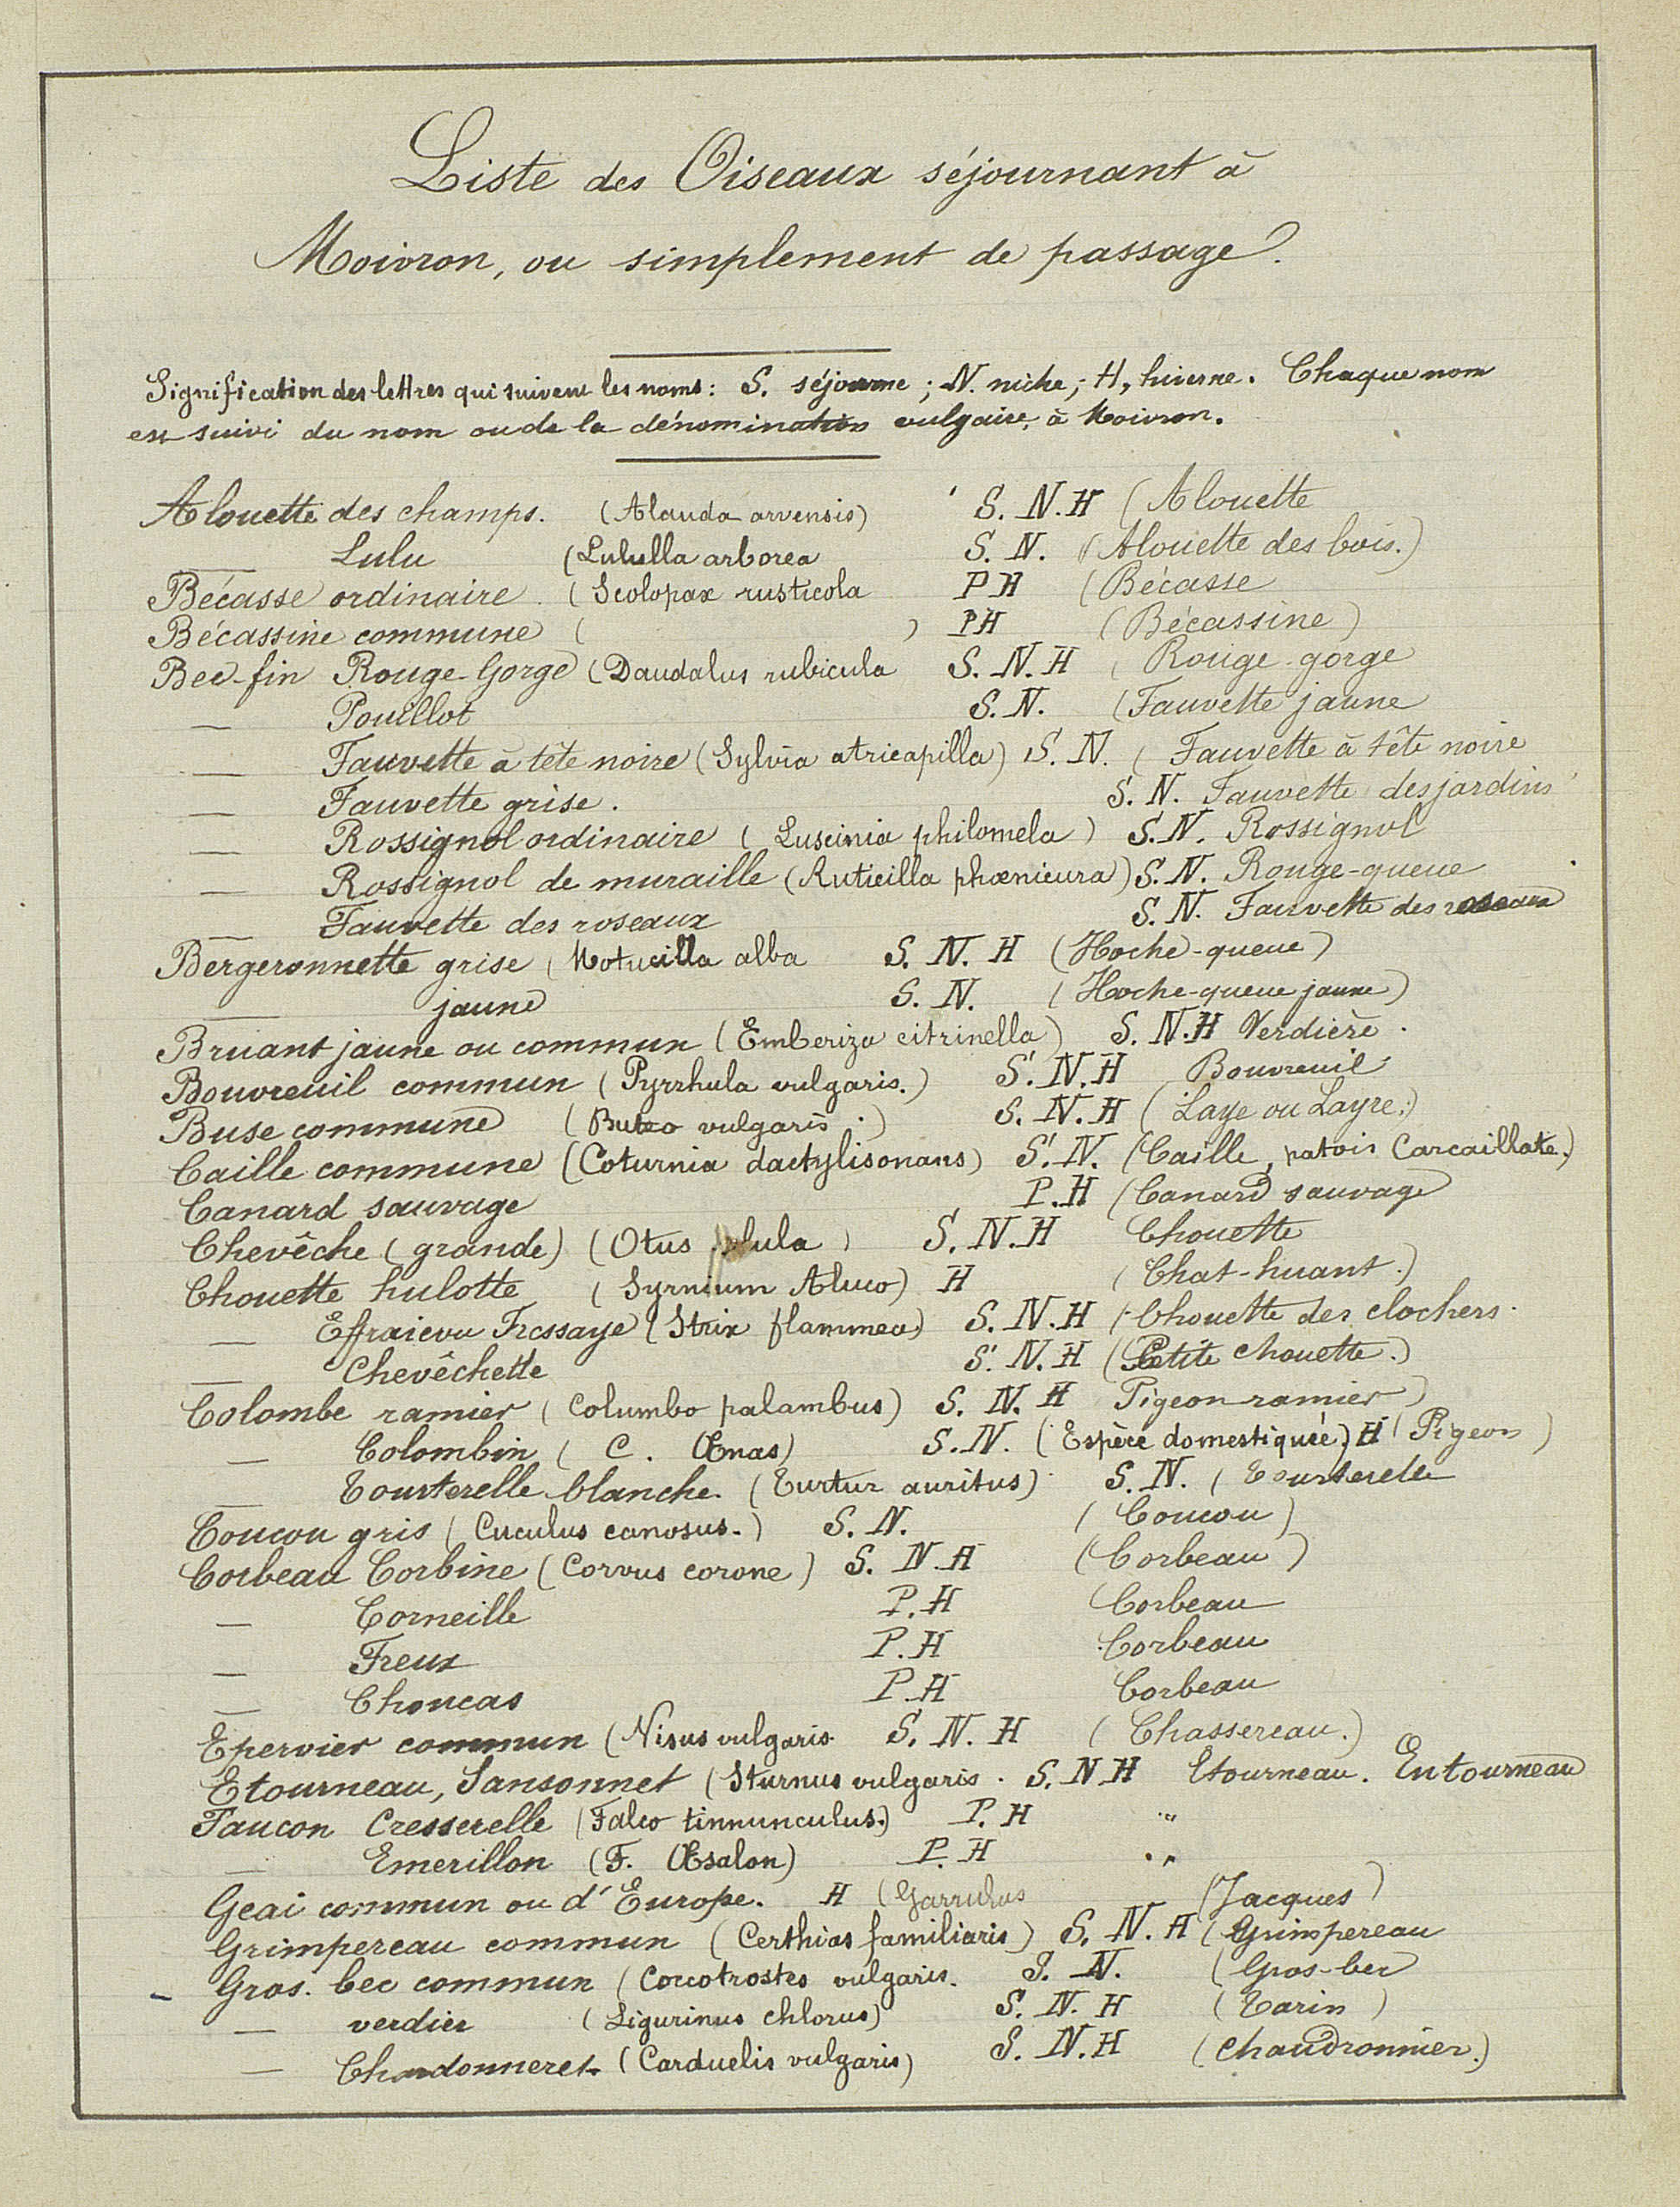 Liste des Oiseaux séjournant à
Moivron, ou simplement de passage.
Signification des lettres qui suivent les noms : S. séjourne ; N. niche ; H, hiverne. Chaque nom
est suivi du nom ou de la dénomination vulgaire, à Moivron.
Alouette des champs. (Alauda arvensis) S. N. H (Alouette
— Lulu (Lululla arborea S. N. (Alouette des bois.)
Bécasse ordinaire. (Scolopax rusticola P H (Bécasse
Bécassine commune ( ) P H (Bécassine)
Bec-fin Rouge-Gorge (Daudalus rubicula S. N. H (Rouge-gorge
— Pouillot S. N. (Fauvette jaune
— Fauvette à tête noire (Sylvia atricapilla) S. N. (Fauvette à tête noire
— Fauvette grise. S. N. Fauvette des jardins
— Rossignol ordinaire (Luscinia philomela) S. N. Rossignol
— Rossignol de muraille (Ruticilla phœnicura) S. N. Rouge-queue
— Fauvette des roseaux S. N. Fauvette des roseaux
Bergeronnette grise (Motacilla alba S. N. H (Hoche-queue)
— jaune S. N. (Hoche-queue jaune)
Bruant jaune ou commun (Emberiza citrinella) S. N. H Verdière.
Bouvreuil commun (Pyrrhula vulgaris.) S. N. H Bouvreuil
Buse commune (Buteo vulgaris.) S. N. H (Laye ou Layre.)
Caille commune (Coturnia dactylisonans) S. N. (Caille, patois Carcaillate.)
Canard sauvage P. H (Canard sauvage
Chevêche (grande) (Otus ulula) S. N. H Chouette
Chouette hulotte (Syrnium Aluco) H (Chat-huant.)
— Effraie ou Fressaye (Strix flammea) S. N. H (Chouette des clochers.
— Chevêchette S. N. H (Petite chouette.)
Colombe ramier (Columbo palambus) S. N. H Pigeon-ramier)
— Colombin (C. Œnas) S. N. (Espèce domestiquée) H (Pigeon)
— Tourterelle blanche. (Turtur auritus) S. N. (Tourterelle
Coucou gris (Cuculus canosus.) S. N. (Coucou)
Corbeau Corbine (Corvus corone) S. N H (Corbeau)
— Corneille P. H (Corbeau
— Freux P. H Corbeau
— Choucas P. H Corbeau
Epervier commun (Nisus vulgaris. S. N. H (Chassereau.)
Etourneau, Sansonnet (Sturnus vulgaris. S. N H Etourneau. Entourneau
Faucon Cresserelle (Falco tinnunculus.) P. H "
— Emerillon (F. Œsalon) P. H "
Geai commun ou d'Europe. H (Garrulus (Jacques)
Grimpereau commun (Certhias familiaris) S. N. H (Grimpereau
Gros. bec commun (Coccotrostes vulgaris. S. N. (Gros-bec
— verdier (Ligurinus chlorus) S. N. H (Tarin)
— Chardonneret. (Carduelis vulgaris) S. N. H (Chaudronnier.)